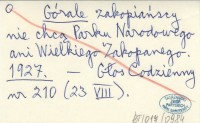 Górale zakopiańscy
nie chcą Parku Narodowego
ani Wielkiego Zakopanego.
1927. — Głos Codzienny
nr 210 (23 VIII).